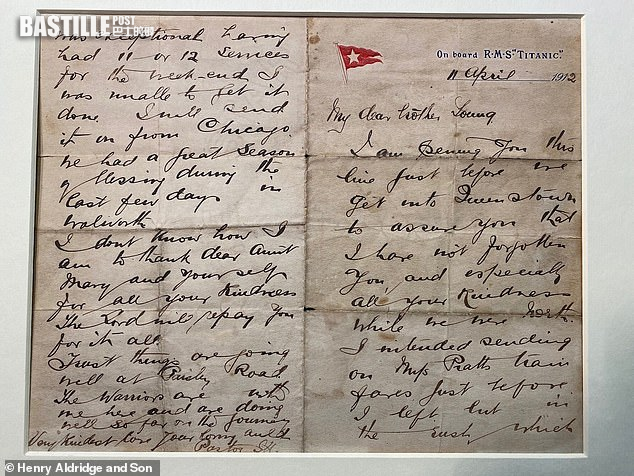 BASTILLE POST
巴士的報
On board R·M·S "TITANIC."
11 April 1912
My dear brother Young
I am penning you this
line just before we
get into Queenstown
to assure you that
I have not forgotten
you and especially
all your kindness
while we were North
I intended sending
on Mrs Pratts train
fares just before
I left but in
the rush which
was exceptional having
had 11 or 12 Services
for the week-end I
was unable to get it
done I will send
it on from Chicago.
We had a great Season
of blessing during the
last few days in
Walworth
I dont know how I
am to thank dear Aunt
Mary and yourself
for all your kindness
The Lord will repay you
for it all.
Trust things are going
well at Paisley Road
The Warriors are with
me here and are doing
well so far on the journey
Very kindest love your loving auld
Pastor
© Henry Aldridge and Son